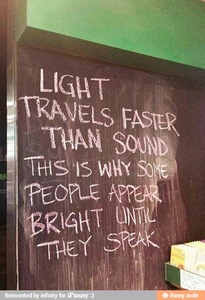 LIGHT
TRAVELS FASTER
THAN SOUND
THIS IS WHY SOME
PEOPLE APPEAR
BRIGHT UNTIL
THEY SPEAK
Reinvented by infinity for iFunny :)
ifunny.mobi